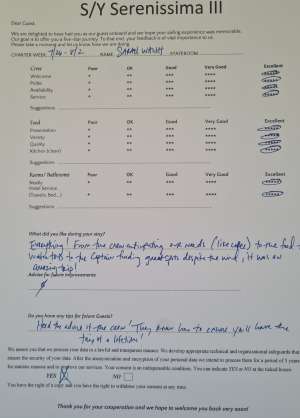 S/Y Serenissima III
Dear Guest,
We are delighted to have had you as our guest onboard and we hope your sailing experience was memorable.
Our goal is to offer you a five-star journey. To that end, your feedback is of vital importance to us.
Please take a moment and let us know how we are doing.
CHARTER WEEK 7/26 - 8/2 NAME SARAH STATEROOM
Crew Poor OK Good Very Good Excellent
Welcome * ** *** **** *****
Polite * ** *** **** *****
Availability * ** *** **** *****
Service * ** *** **** *****
Suggestions
Food Poor OK Good Very Good Excellent
Presentation * ** *** **** *****
Variety * ** *** **** *****
Quality * ** *** **** *****
Kitchen (clean) * ** *** **** *****
Suggestions
Rooms/ Bathrooms Poor OK Good Very Good Excellent
Ready * ** *** **** *****
Hotel Service * ** *** **** *****
(Towels, Bed...)
Suggestions
What did you like during your stay?
Everything! From the crew anticipating our needs (like coffee) to the food -
to the Captain finding great spots despite the wind, it was an
amazing trip!
Advise for future improvements
Do you have any tips for future Guests?
Heed the advice of the crew! They know how to ensure you'll have the
trip of a lifetime!
We assure you that we process your data in a lawful and transparent manner. We develop appropriate technical and organisational safeguards that
ensure the security of your data. After the anonymization and encryption of your personal data we intend to process them for a period of 5 years
for statistic reasons and to improve our services. Your consent is an indispensable condition. You can indicate YES or NO at the ticked boxes
YES X NO
You have the right of a copy and you have the right to withdraw your consent at any time.
Thank you for your cooperation and we hope to welcome you back very soon!